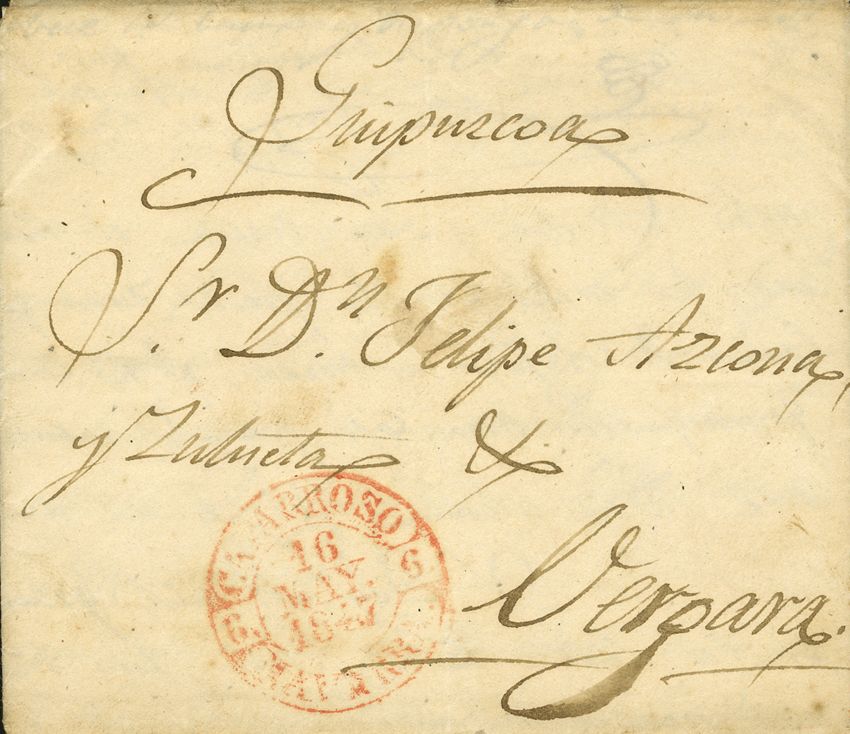 Guipuzcoa
Sr. Dn. Felipe Azcona
y Zulueta &
Vergara.
CAPARROSO
16
MAY.
1847
NAVARRA